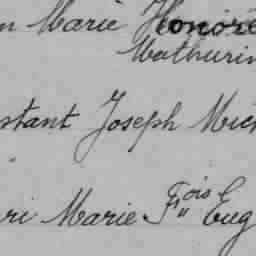 n Marie Honoré
Mathurin
stant Joseph Mich
ri Marie F^ois Eug